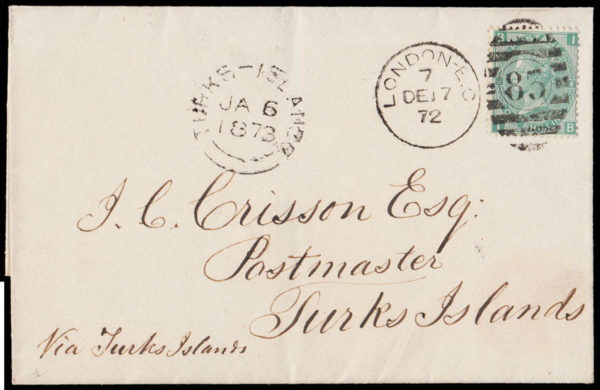 TURKS-ISLANDS
JA 6
1873
LONDON-E.C
7
DE 17
72
3 I
85
I B
J. C. Crisson Esq:
Postmaster
Turks Islands
Via Turks Islands